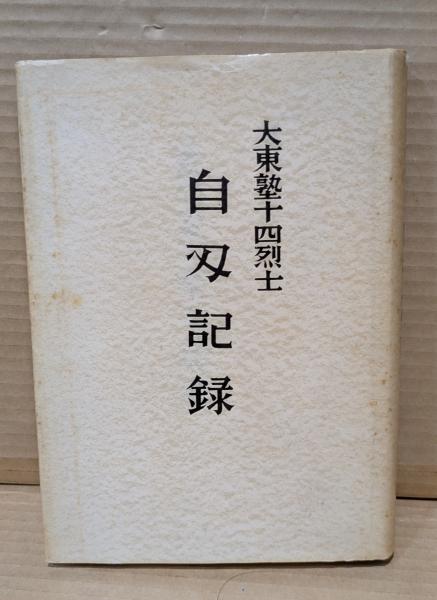 大東塾十四烈士
自刃記録